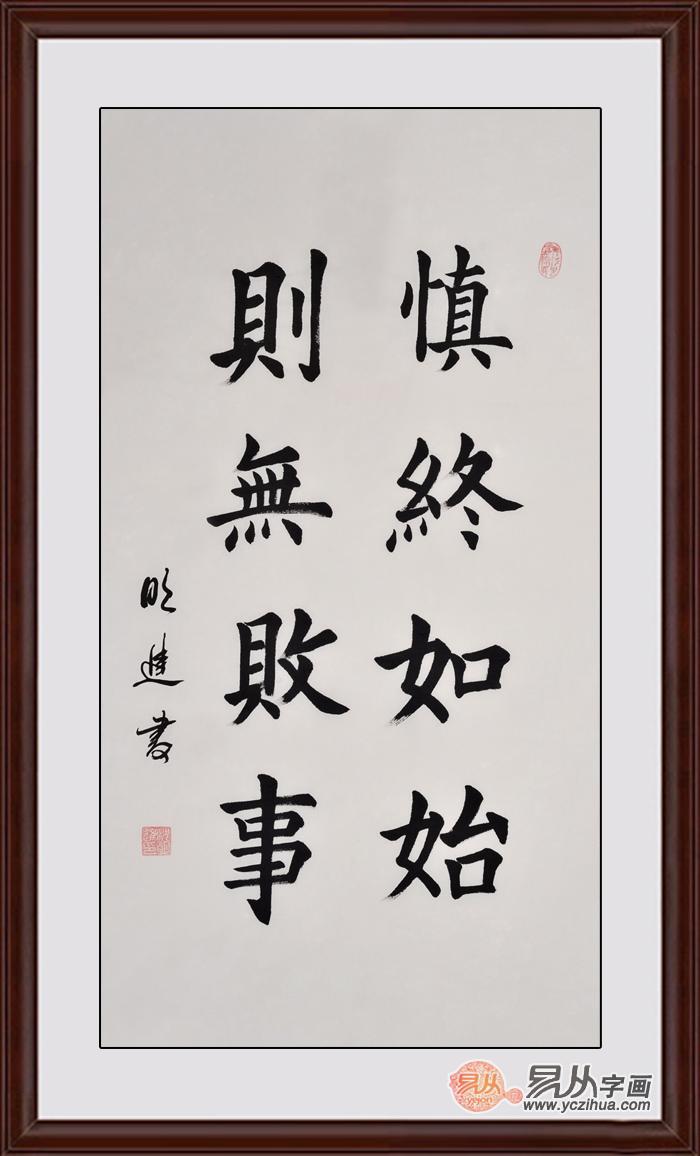 慎終如始
則無敗事
明進書
易从
yejojon
易从字画
www.yczihua.com